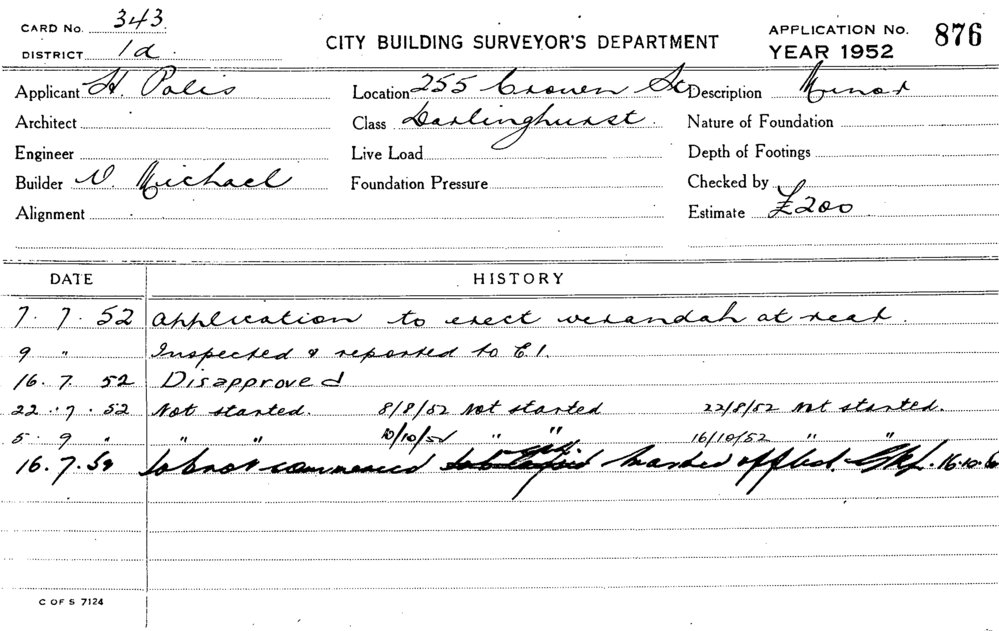 CARD No. 343.
DISTRICT 1a.
CITY BUILDING SURVEYOR'S DEPARTMENT
APPLICATION No. 876
YEAR 1952
Applicant H. Polis
Location 255 Crown St
Description Minor
Architect
Class Darlinghurst.
Nature of Foundation
Engineer
Live Load
Depth of Footings
Builder N. Michael
Foundation Pressure
Checked by
Alignment
Estimate £200
DATE HISTORY
7. 7. 52 Application to erect verandah at rear.
9 " Inspected & reported to E.I.
16. 7. 52 Disapproved
22. 7. 52 Not started. 8/8/52 Not started 22/8/52 Not started.
5. 9 " " " 10/10/52 " " 16/10/52 " "
16. 7. 59 Job not commenced Marked off list. 16.10.
C OF S 7124